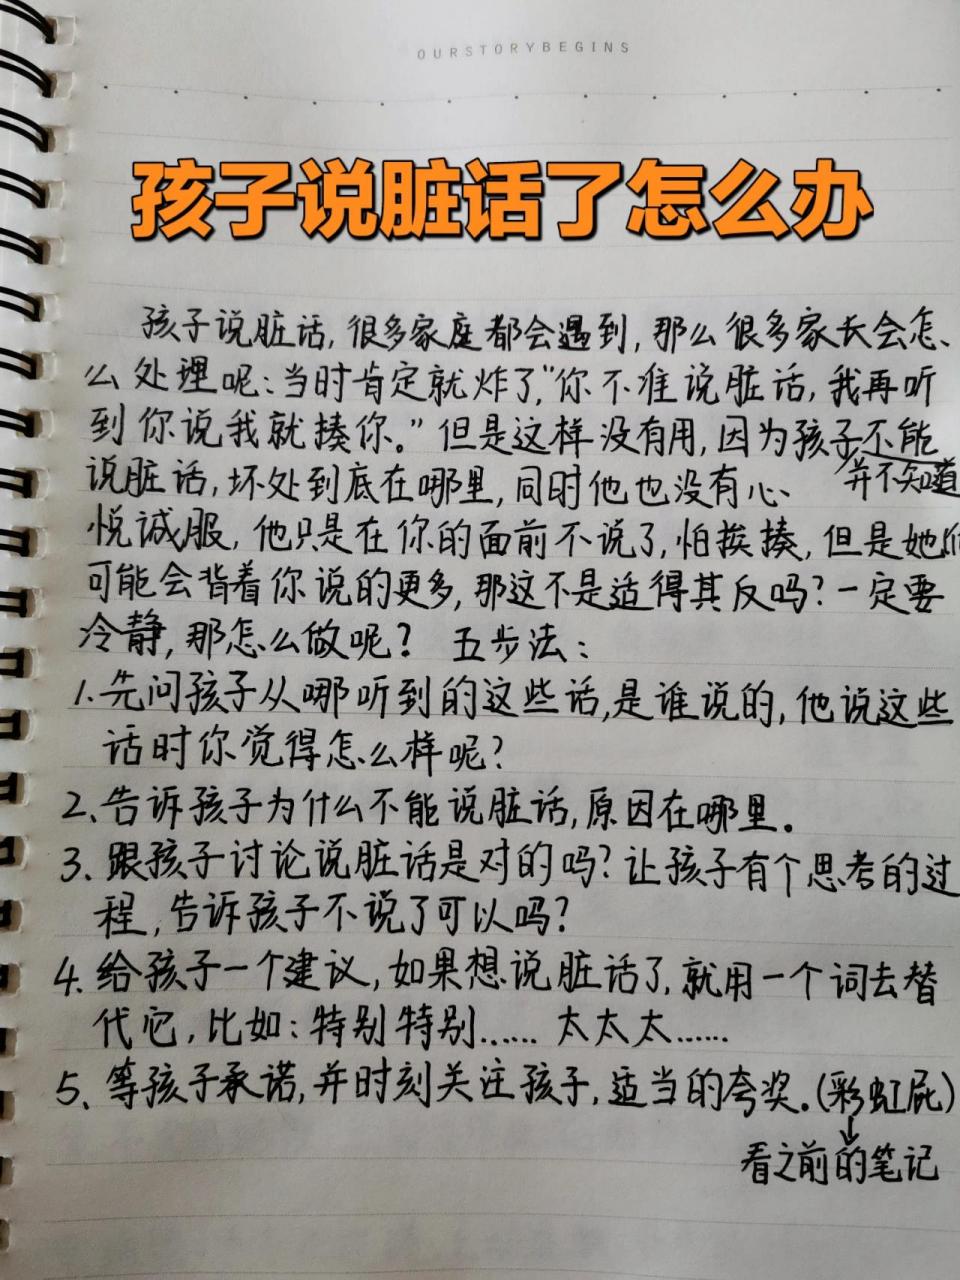 OURSTORYBEGINS
孩子说脏话了怎么办
孩子说脏话,很多家庭都会遇到,那么很多家长会怎、
么处理呢:当时肯定就炸了,“你不准说脏话,我再听
到你说我就揍你。”但是这样没有用,因为孩子不能
并不知道
说脏话,坏处到底在哪里,同时他也没有心、
悦诚服,他只是在你的面前不说了,怕挨揍,但是她们
可能会背着你说的更多,那这不是适得其反吗?一定要
冷静,那怎么做呢? 五步法:
1.先问孩子从哪听到的这些话,是谁说的,他说这些
话时你觉得怎么样呢?
2、告诉孩子为什么不能说脏话,原因在哪里。
3、跟孩子讨论说脏话是对的吗?让孩子有个思考的过
程,告诉孩子不说了可以吗?
4、给孩子一个建议,如果想说脏话了,就用一个词去替
代它,比如:特别特别…… 太太太……
5、等孩子承诺,并时刻关注孩子,适当的夸奖。(彩虹屁)
↓
看之前的笔记